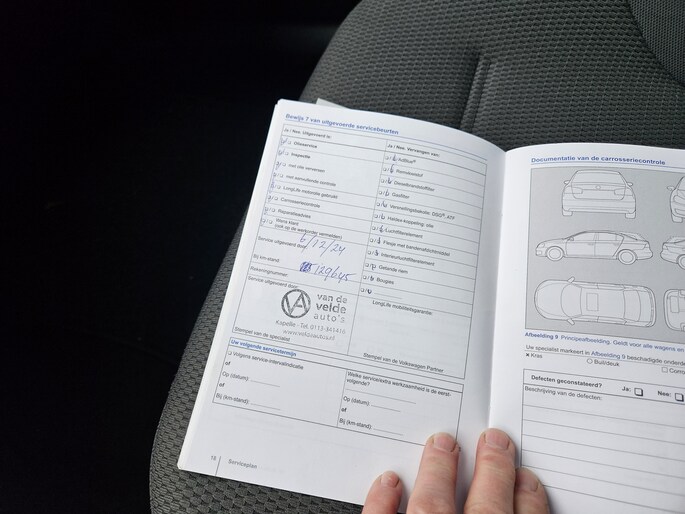 Bewijs 7 van uitgevoerde servicebeurten
Ja / Nee Uitgevoerd is:
Olieservice
Inspectie
met olie verversen
met aanvullende controle
LongLife motorolie gebruikt
Carrosseriecontrole
Reparatieadvies
Wens klant
(ook op de werkorder vermelden)
Service uitgevoerd door: 6/12/24
Bij km-stand: 129645
Rekeningnummer:
Service uitgevoerd door:
van de
velde
auto's
Kapelle - Tel. 0113-341416
Stempel van de specialist
Ja / Nee Vervangen van:
AdBlue®
Remvloeistof
Dieselbrandstoffilter
Gasfilter
Versnellingsbakolie: DSG®, ATF
Haldex-koppeling: olie
Luchtfilterelement
Flesje met bandenafdichtmiddel
Interieurluchtfilterelement
Getande riem
Bougies
LongLife mobiliteitsgarantie:
Stempel van de Volkswagen Partner
Uw volgende servicetermijn
Volgens service-intervalindicatie
of
Op (datum):
of
Bij (km-stand):
Welke service/extra werkzaamheid is de eerst-
volgende?
Op (datum):
of
Bij (km-stand):
18
Serviceplan
Documentatie van de carrosseriecontrole
Afbeelding 9 Principeafbeelding. Geldt voor alle wagens en
Uw specialist markeert in Afbeelding 9 beschadigde
Kras
Buil/deuk
Defecten geconstateerd?
Ja:
Nee:
Beschrijving van de defecten: